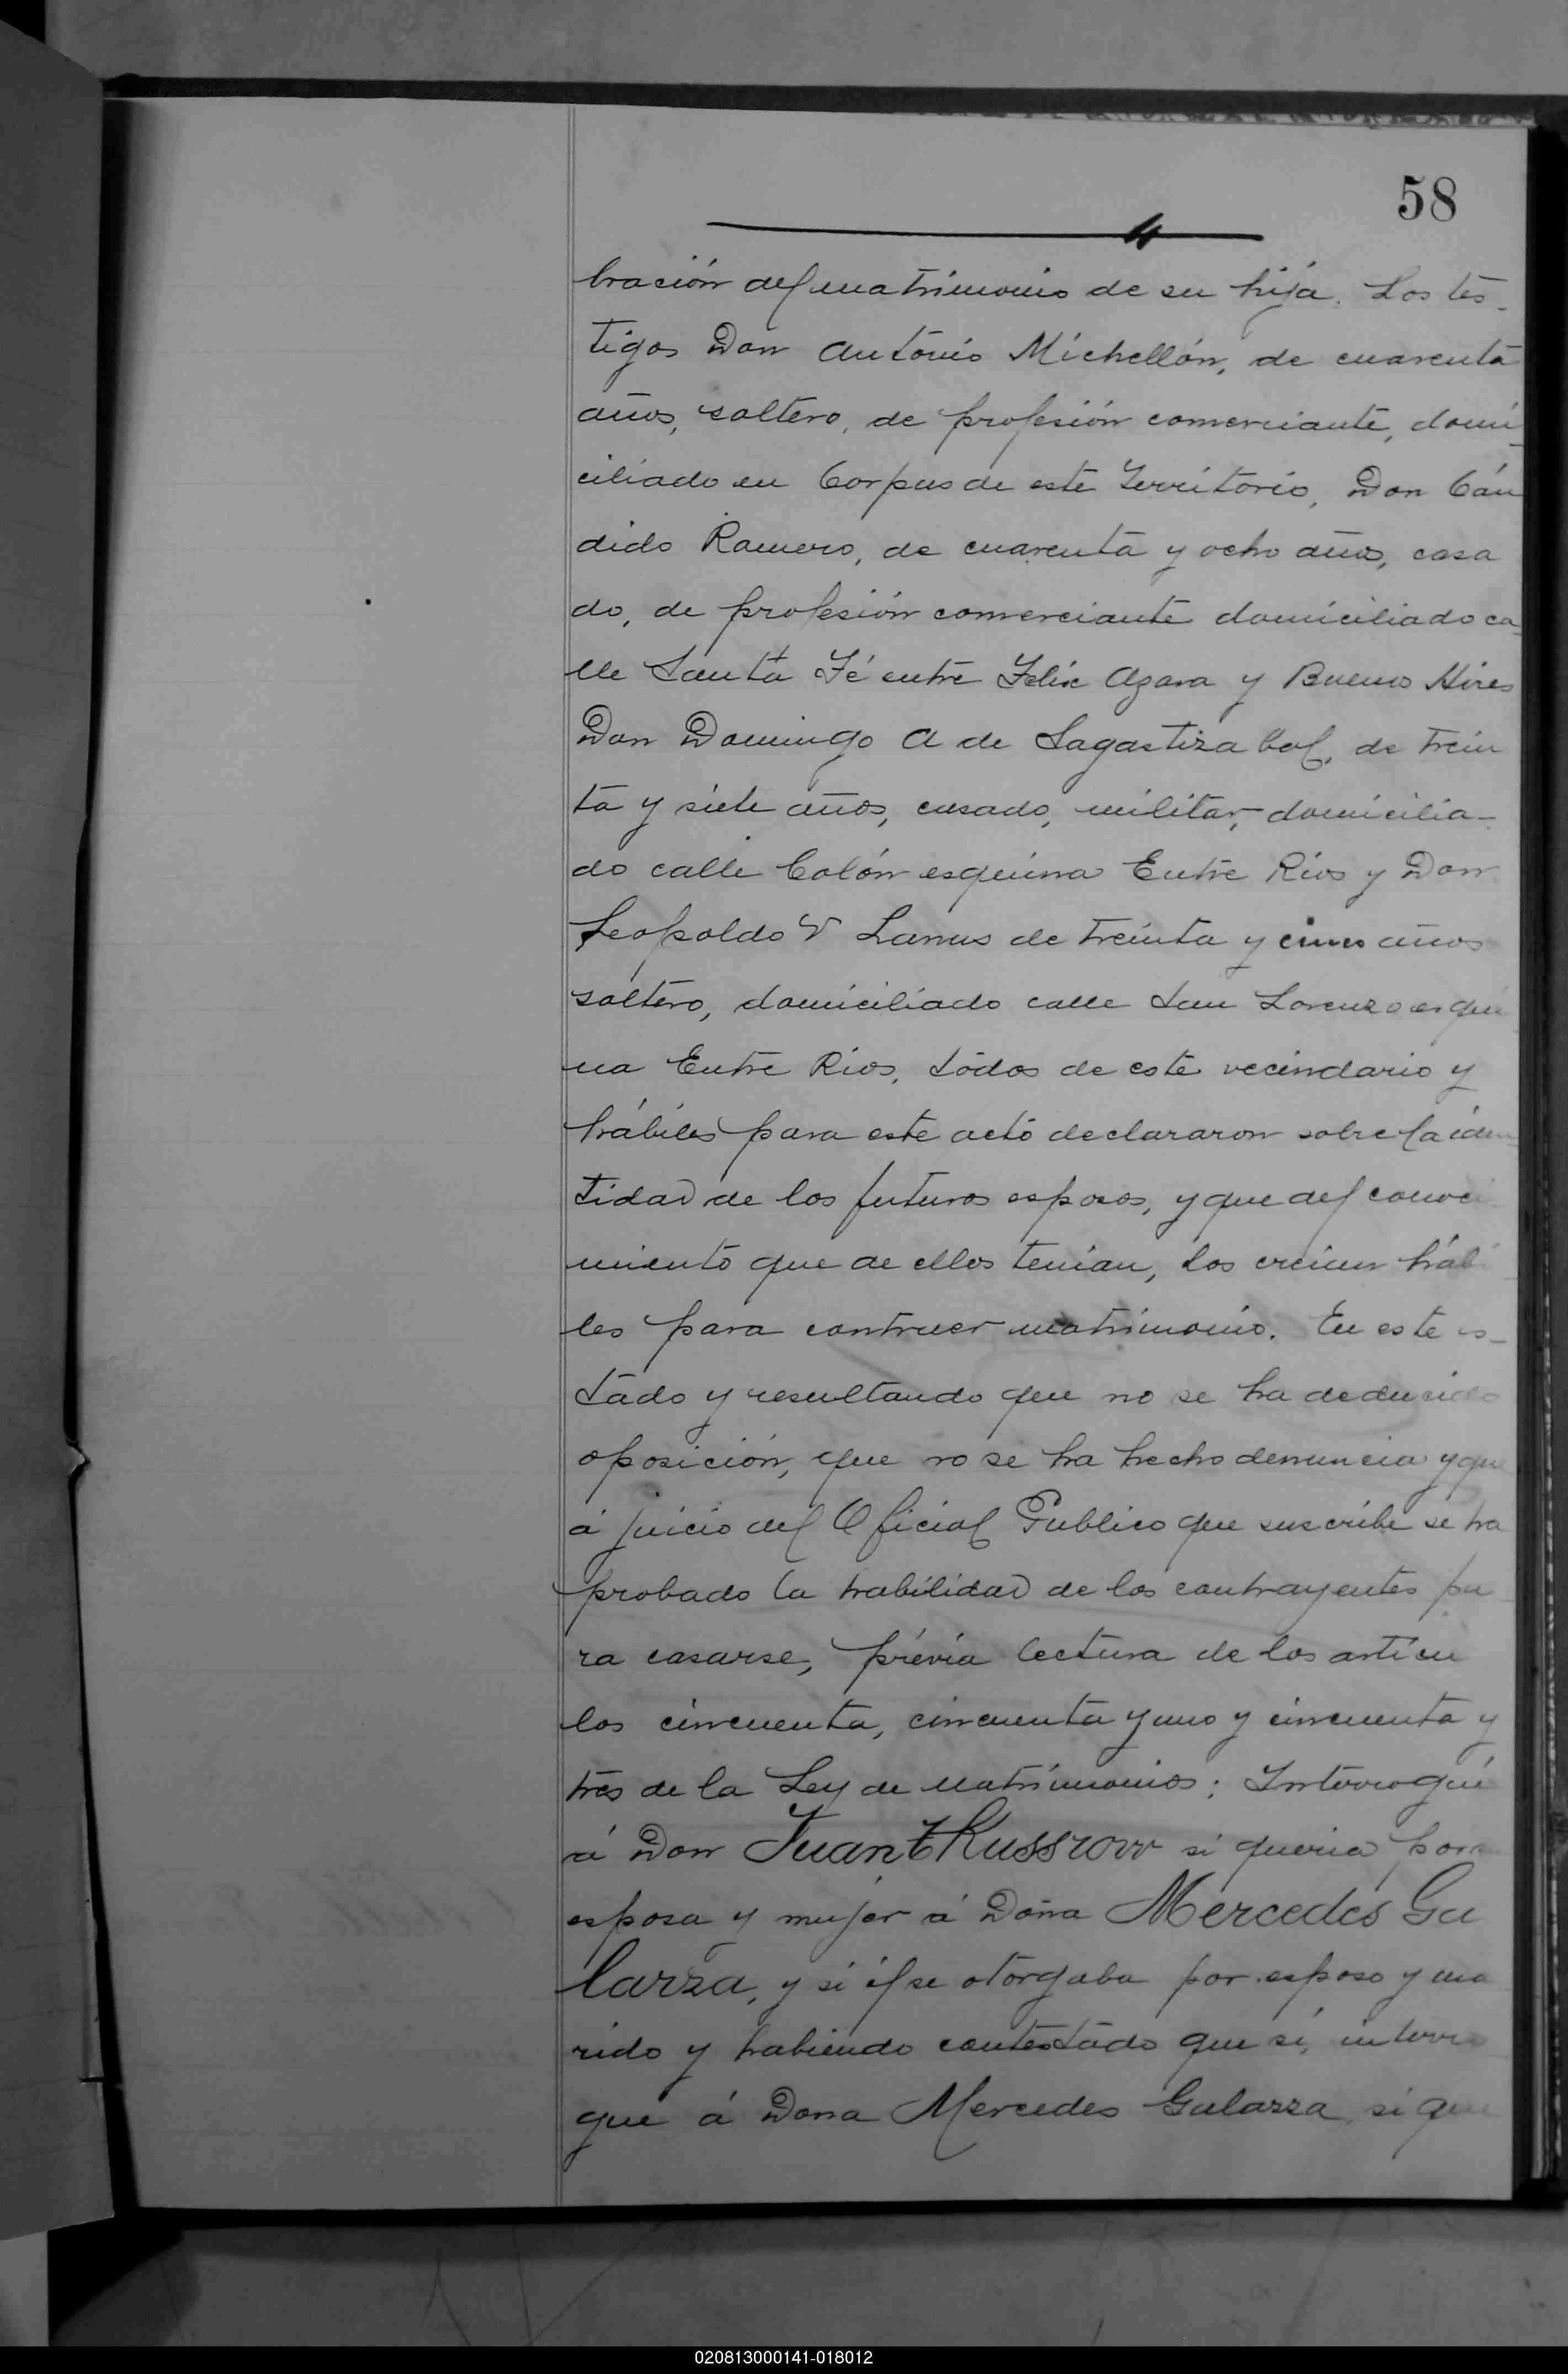 58
bración del matrimonio de su hija. Los tes-
tigos Don Antonio Michellón, de cuarenta
años, soltero, de profesión comerciante, domi-
ciliado en Corpus de este Territorio, Don Cán
dido Romero, de cuarenta y ocho años, casa
do, de profesión comerciante domiciliado ca-
lle Santa Fé entre Felix Azara y Buenos Aires
Don Domingo A de Sagastizabal, de trein
ta y siete años, casado, militar, domicilia-
do calle Colón esquina Entre Rios y Don
Leopoldo Lanus de treinta y cinco años
soltero, domiciliado calle San Lorenzo esqui
na Entre Rios, todos de este vecindario y
hábiles para este acto declararon sobre la iden
tidad de los futuros esposos, y que del conoci
miento que de ellos tenian, los creian hábi
les para contraer matrimonio. En este es-
tado y resultando que no se ha deducido
oposición, que no se ha hecho denuncia y que
á juicio del Oficial Publico que suscribe se ha
probado la habilidad de los contrayentes pa
ra casarse, prévia lectura de los articu
los cincuenta, cincuenta y uno y cincuenta y
tres de la Ley de Matrimonios; Interrogué
á Don Juan Kussrow si queria por
esposa y mujer á Doña Mercedes Ga
larza, y si él se otorgaba por esposo y ma
rido y habiendo contestado que si, interro
gue á Dona Mercedes Galarza si que
020813000141-018012